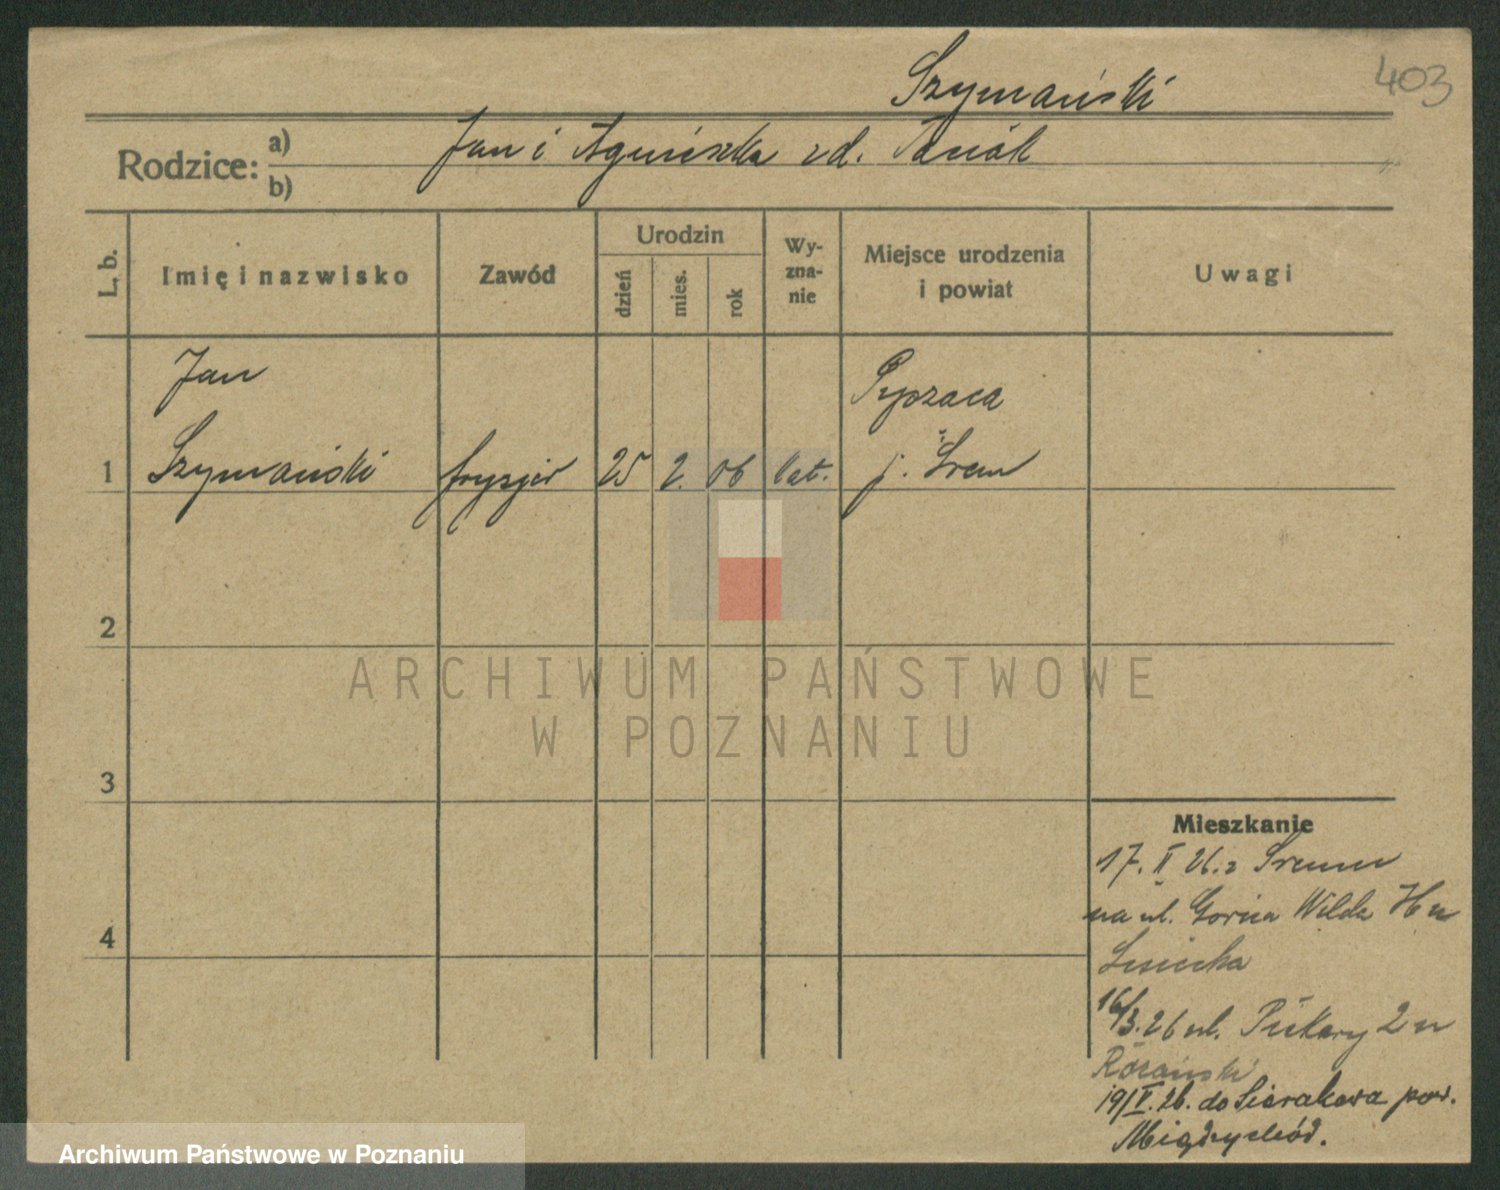 403
Szymański
Rodzice:
a) Jan i Agnieszka zd.
b)
L. b.
Imię i nazwisko
Zawód
Urodzin
dzień
mies.
rok
Wy-
zna-
nie
Miejsce urodzenia
i powiat
Uwagi
Jan
Pysząca
1 Szymański fryzjer 25 2. 06 kat. p. Śrem
2
3
4
ARCHIWUM PAŃSTWOWE
W POZNANIU
Mieszkanie
17. II 26. z Śremu
na ul. Górna Wilda u
16/3.26 ul. Piekary 2 u
Różański
19/V.26. do Sierakowa pow.
Międzychód.
Archiwum Państwowe w Poznaniu